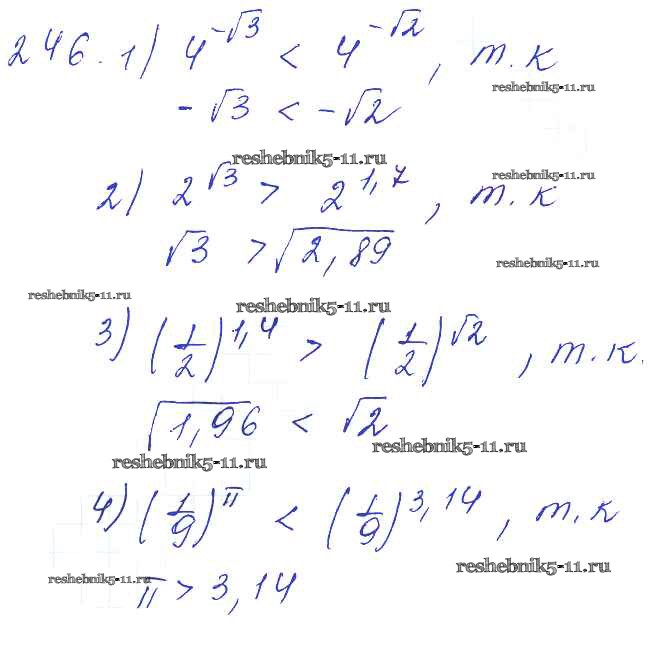 246. 1) 4^{-√3} < 4^{-√2}, т.к
reshebnik5-11.ru
-√3 < -√2
reshebnik5-11.ru
reshebnik5-11.ru
2) 2^{√3} > 2^{1,7}, т.к
√3 > √2,89
reshebnik5-11.ru
reshebnik5-11.ru
reshebnik5-11.ru
3) (1/2)^{1,4} > (1/2)^{√2}, т.к.
√1,96 < √2
reshebnik5-11.ru
reshebnik5-11.ru
4) (1/9)^{π} < (1/9)^{3,14}, т.к
reshebnik5-11.ru
reshebnik5-11.ru
π > 3,14